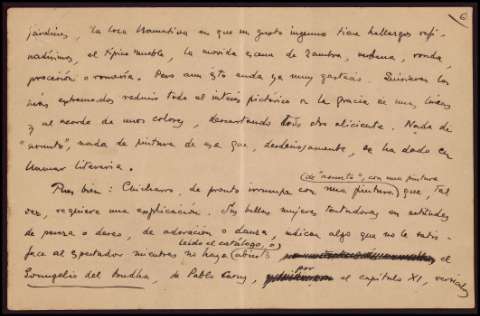 6
jardines, la loca llamativa en que un gusto ingenuo tiene hallazgos refi-
nadísimos, el típico mueble, la movida escena de zambra, verbena, ronda,
procesión o romería. Pero aun esto anda ya muy gastado. Quisieran los
más extremados reducir todo el interés pictórico a la gracia de unas líneas
y al acorde de unos colores, descartando todo otro aliciente. Nada de
"asunto", nada de pintura de esa que, desdeñosamente, se ha dado en
llamar literaria.
(de "asunto", con una pintura
Pues bien: Chicharro, de pronto irrumpe con una pintura) que, tal
vez, requiere una explicación. Sus bellas mujeres tentadoras en actitudes
de pereza o deseo, de adoración o danza, indican algo que no le satis-
leído el catálogo, o)
face al espectador mientras no haya (abierto el
por
Evangelio del Boudha, de Pablo Carus, el capítulo XI, versículos